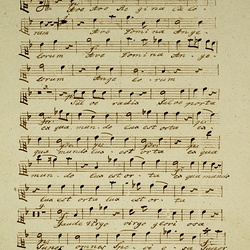 Ave Regina cælo
rum Ave Domina Ange
lorum Ave Domina Ange
lorum Ange lorum
Salve radix Salve porta
ex qua mundo lux est orta ex
qua mundo lux est orta ex qua
mundo lux est orta ex qua mundo
lux est orta lux est orta
Gaude Virgo Virgo glori osa
Super omnes speciosa